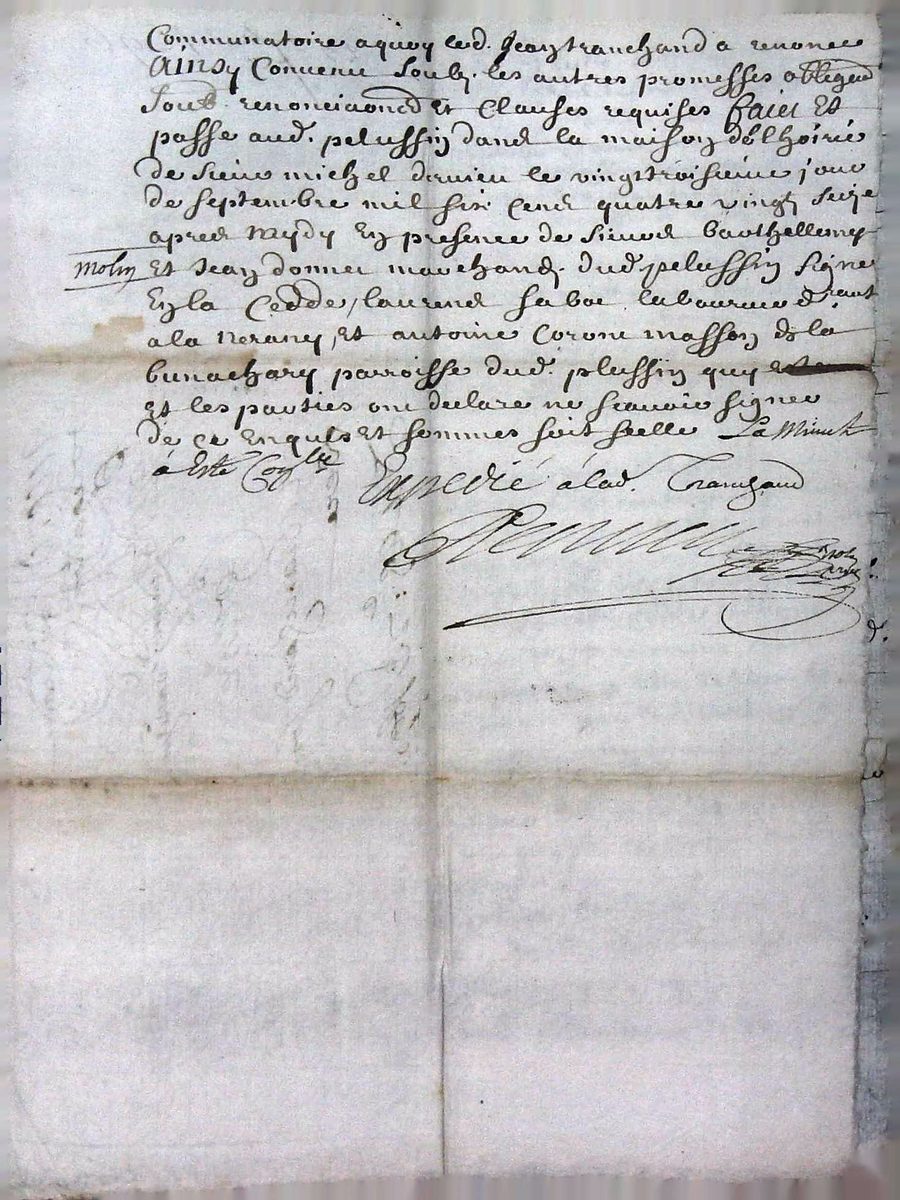 Communatoire a quoy led. Jean tranchand a renoncé
Ainsy Convenu soulz. les autres promesses obliga͠on
soub. renonciaoncd et Clauses requises faict Et
passé aud. pelussin dans la maison de lhoirie
de sieur michel dervieu le vingttroisieme jour
de septembre mil six Cent quatre vingtz seize
apres Mydy En presence de sieurs barthellemy
Molin Et Jean donnet marchand. dud. pelussin signe
En la Cedde, laurend sabot laboureur d'
a la Nerany, Et antoine Coront masson de la
bunachary parroisse dud. plussin quy
Et les parties ont declaré ne scavoir signer
de ce Enquis Et sommes soit scellé La Minutte
à Esté
Expedié à lad. Tranchand